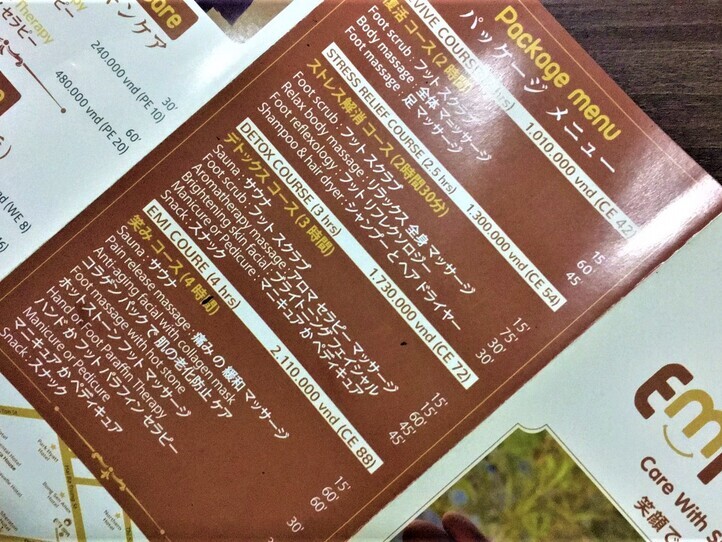 Package menu
パッケージ メニュー
VIVE COURSE (2 hrs) 1.010.000 vnd (CE 42)
復活 コース (2 時間)
Foot scrub : フット スクラブ 15'
Body massage : 全体 マーッサージ 60'
Foot massage : 足 マッサージ 45'
STRESS RELIEF COURSE (2.5 hrs) 1.300.000 vnd (CE 54)
ストレス解消 コース (2時間30分)
Foot scrub : フット スクラブ 15'
Relax body massage : リラックス 全身 マッサージ 75'
Foot reflexology : フット リフレクソロジー 30'
Shampoo & hair dryer : シャンプーと ヘア ドライヤー 30'
DETOX COURSE (3 hrs) 1.730.000 vnd (CE 72)
デトックス コース (3 時間)
Sauna : サウナ 15'
Foot scrub : フット スクラブ 15'
Aromatherapy massage : アロマ セラピー マッサージ 60'
Brightening skin facial : ブライトニング フェイシャル 45'
Manicure or Pedicure : マニキュア か ペディキュア 45'
Snack : スナック
EMI COURE (4 hrs) 2.110.000 vnd (CE 88)
笑み コース (4 時間)
Sauna : サウナ 15'
Pain release massage : 痛みの 緩和 マッサージ 60'
Anti-aging facial with collagen mask 60'
コラゲンパックで 肌の 老化防止 ケア
Foot massage with hot stone
ホットストーンフットマッサージ
Hand or Foot Paraffin Therapy 30'
ハンド か フット パラフィン セラピー
Manicure or Pedicure
マニキュア か ペディキュア
Snack : スナック
care
キンケア
Therapy
セラピー
240.000 vnd (PE 10) 30'
480.000 vnd (PE 20) 60'
(WE 8)
Care With
笑顔で